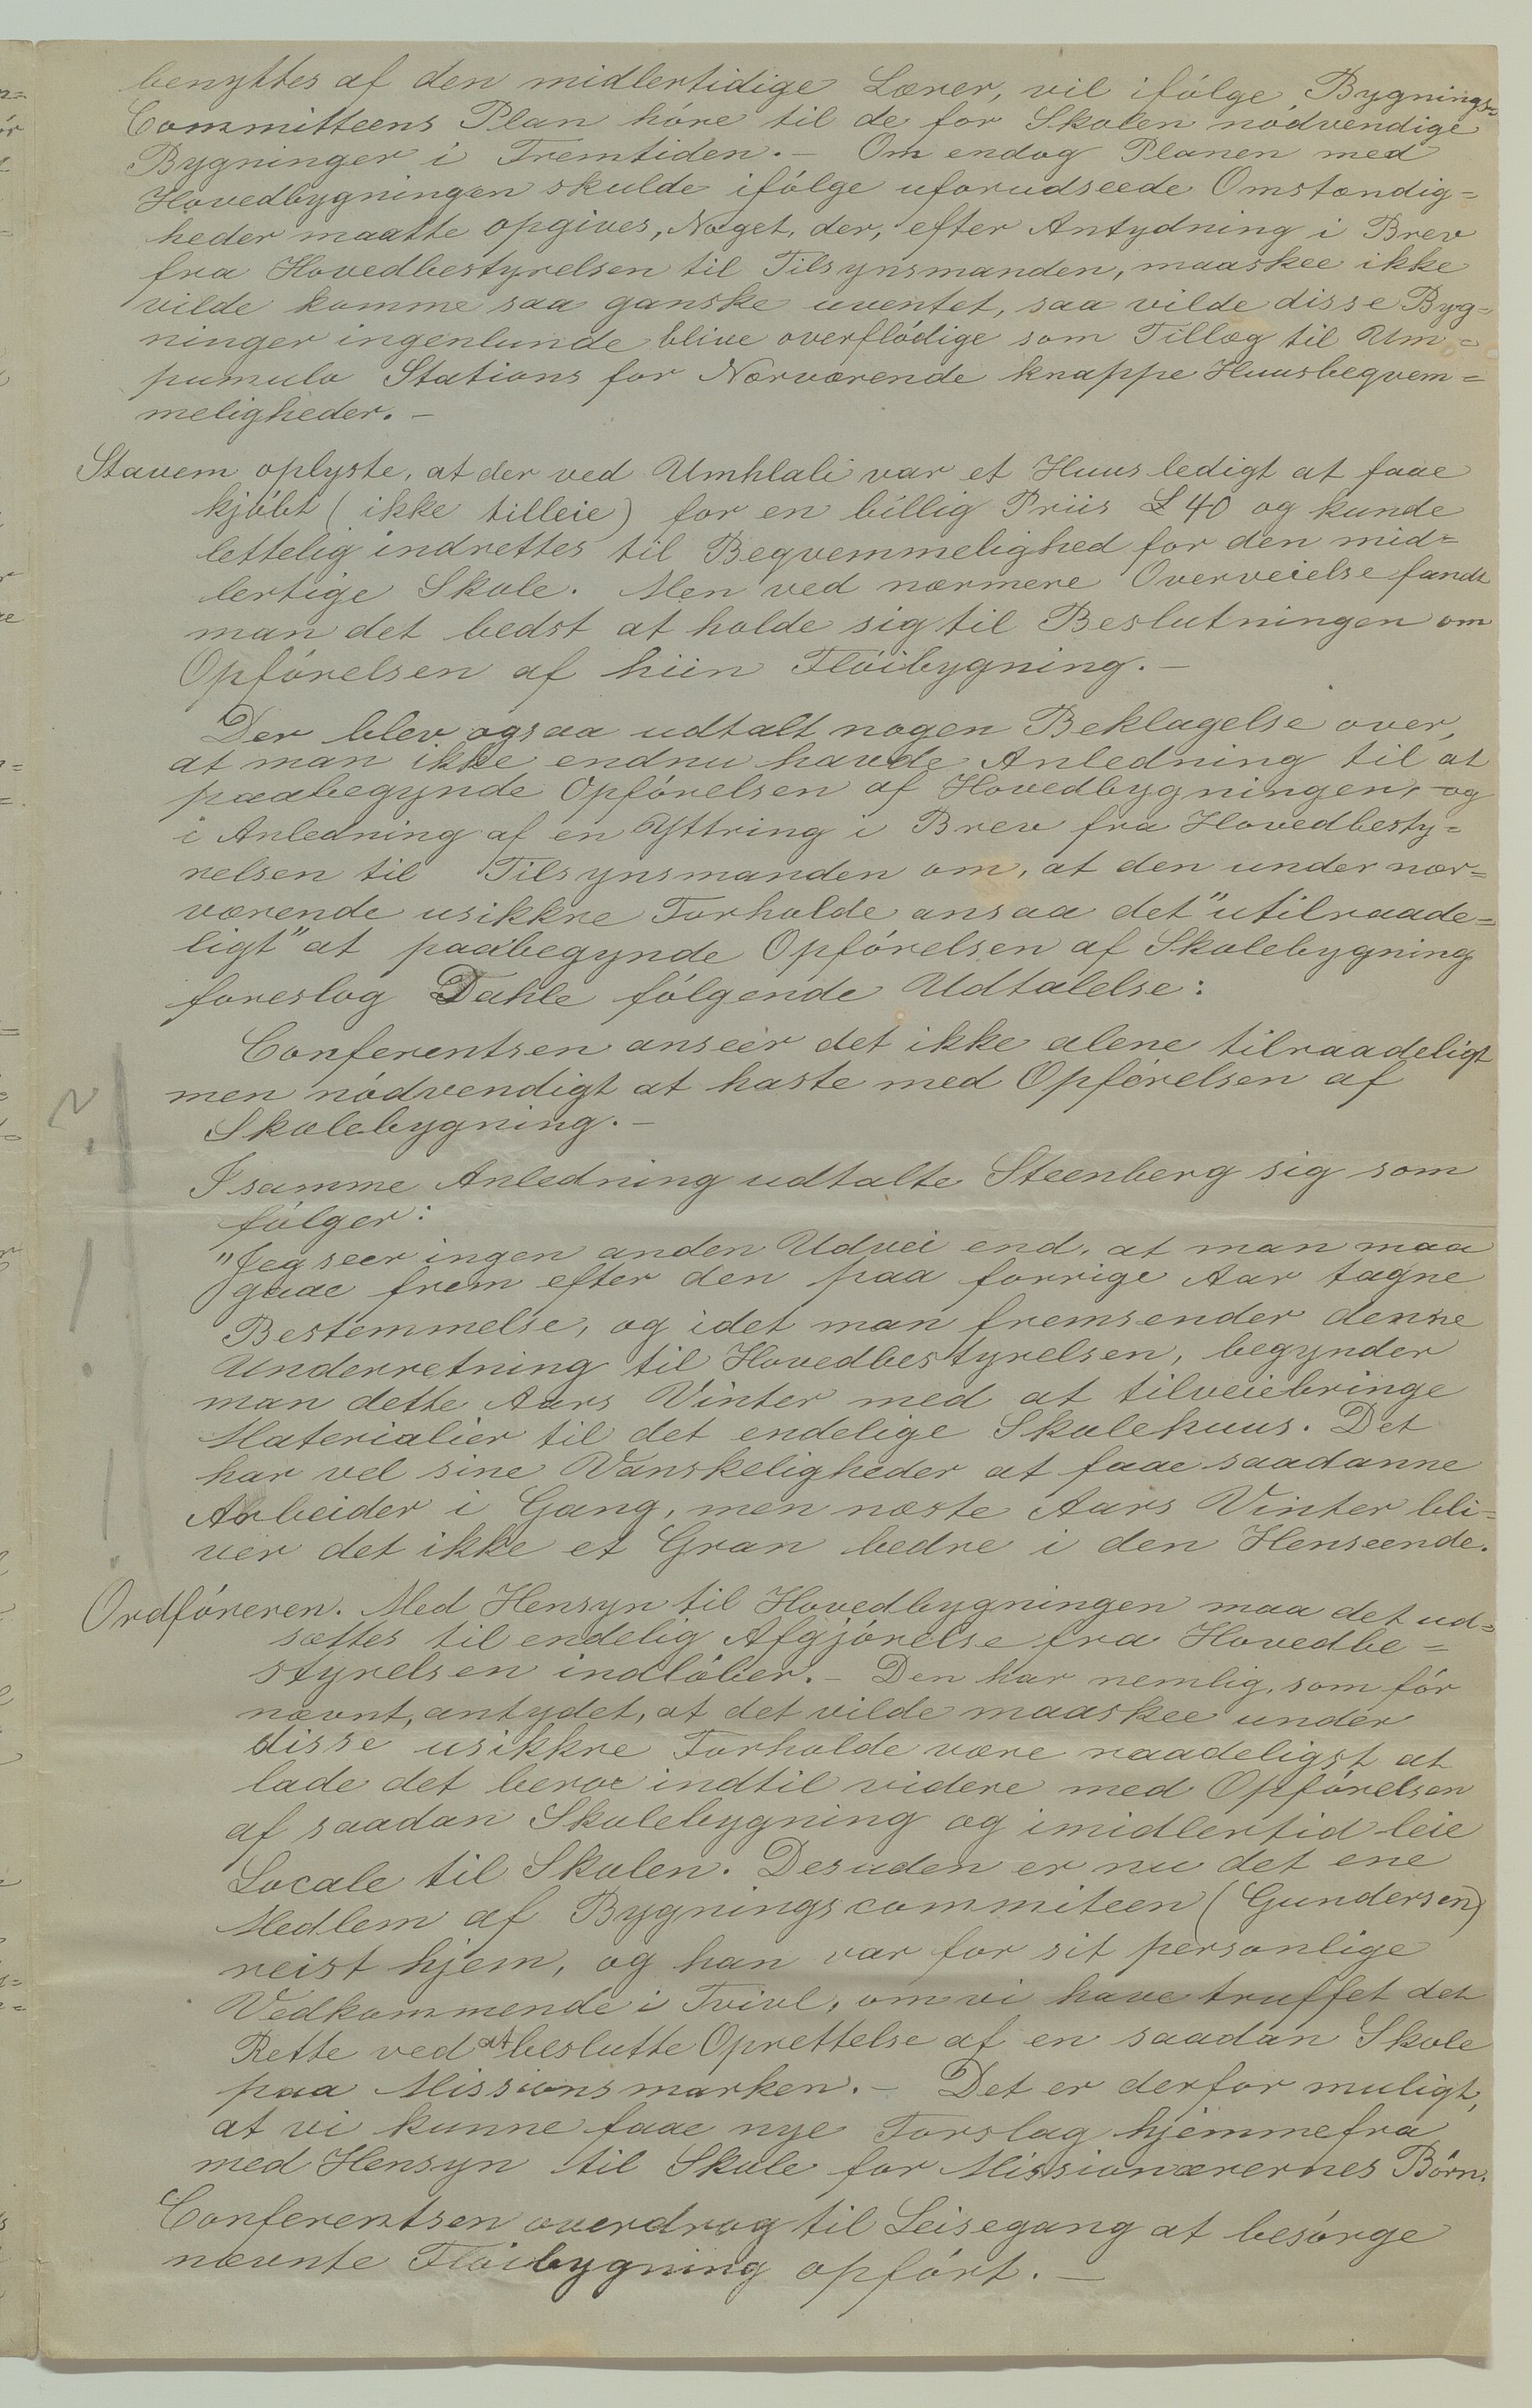 benyttes af den midlertidige Lærer, vil ifólge Bygnings=
Committeens Plan hóre til de for Skolen nódvendige
Bygninger i Fremtiden. – Om endog Planen med
Hovedbygningen skulde ifólge uforudseede Omstændig=
heder maatte opgives, Noget, der, efter Antydning i Brev
fra Hovedbestyrelsen til Tilsynsmanden, maaskee ikke
vilde komme saa ganske uventet, saa vilde disse Byg=
ninger ingenlunde blive overflódige som Tillæg til Um=
pumulo Stations for Nærværende knappe Huusbeqvem=
meligheder. –
Stavem oplyste, at der ved Umhlali var et Huus ledigt at faae
kjóbt (ikke tilleie) for en billig Priis £ 40 og kunde
lettelig indrettes til Beqvemmelighed for den mid=
lertige Skole. Men ved nærmere Overveielse fandt
man det bedst at holde sig til Beslutningen om
Opfórelsen af hiin Flóibygning. –
Der blev ogsaa udtalt nogen Beklagelse over,
at man ikke endnu havde Anledning til at
paabegynde Opfórelsen af Hovedbygningen, og
i Anledning af en Yttring i Brev fra Hovedbesty=
relsen til Tilsynsmanden om, at den under nær=
værende usikkre Forholde ansaa det "utilraade=
ligt" at paabegynde Opfórelsen af Skolebygning
foreslog Dahle fólgende Udtalelse:
Conferentsen anseer det ikke alene tilraadeligt
men nódvendigt at haste med Opfórelsen af
Skolebygning. –
I samme Anledning udtalte Steenberg sig som
fólger:
"Jeg seer ingen anden Udvei end, at man maa
gaae frem efter den paa forrige Aar tagne
Bestemmelse, og idet man fremsender denne
Underretning til Hovedbestyrelsen, begynder
man dette Aars Vinter med at tilveiebringe
Materialier til det endelige Skolehuus. Det
har vel sine Vanskeligheder at faae saadanne
Arbeider i Gang, men næste Aars Vinter bli=
ver det ikke et Gran bedre i den Henseende.
Ordfóreren. Med Hensyn til Hovedbygningen maa det ud=
sættes til endelig Afgjórelse fra Hovedbe=
styrelsen indlóber. – Den har nemlig, som fór
nævnt, antydet, at det vilde maaskee under
disse usikkre Forholde være raadeligst at
lade det beroe indtil videre med Opfórelsen
af saadan Skolebygning og imidlertid leie
Locale til Skolen. Desuden er nu det ene
Medlem af Bygningscommiteen (Gundersen)
reist hjem, og han var for sit personlige
Vedkommende i Tvivl, om vi have truffet det
Rette ved at beslutte Oprettelse af en saadan Skole
paa Missionsmarken. – Det er derfor muligt,
at vi kunne faae nye Forslag hjemmefra
med Hensyn til Skole for Missionærernes Bórn.
Conferentsen overdrog til Leisegang at besórge
nævnte Flóibygning opfórt. –